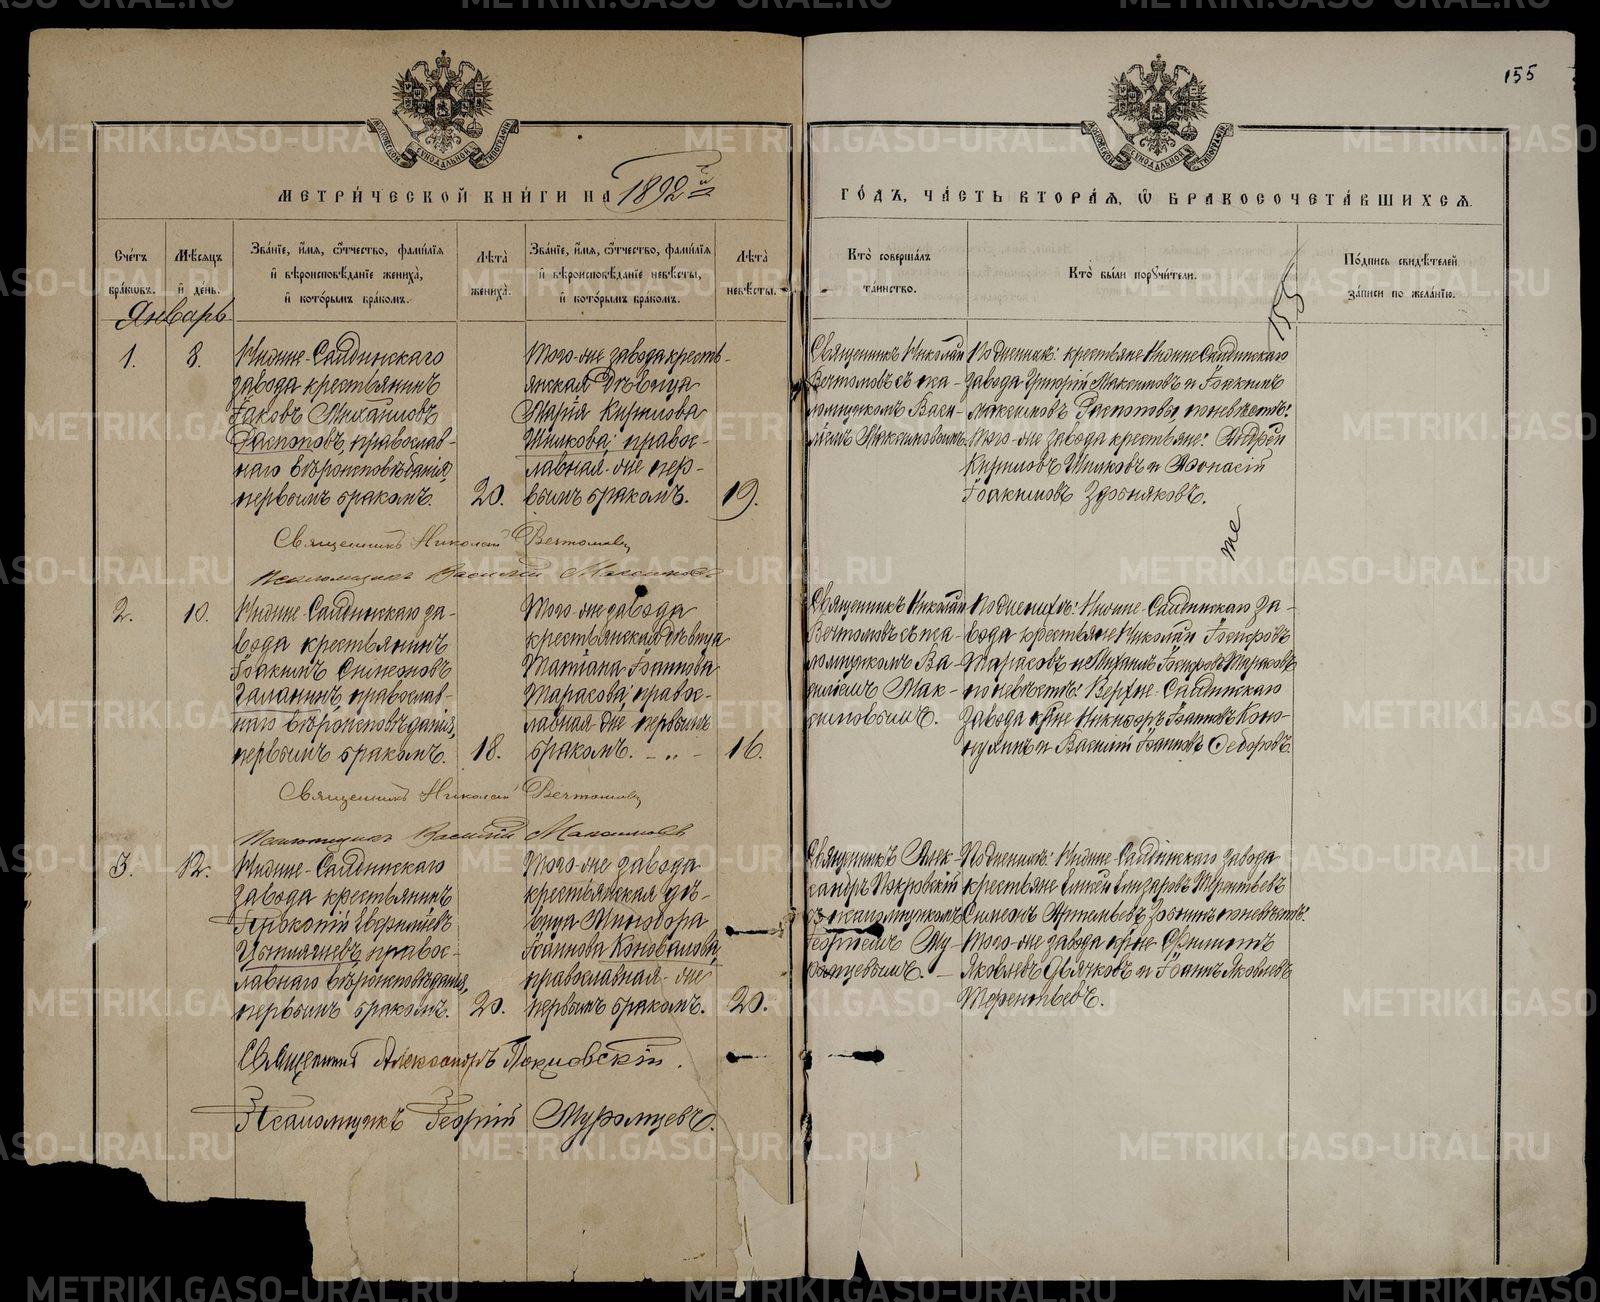 155
МЕТРИ́ЧЕСКОЙ КНИ́ГИ НА 1892 й
ГО́ДЪ, ЧА́СТЬ ВТОРА́Я, Ѡ БРАКОСОЧЕТА́ВШИХСЯ.
Сче́тъ бра́ковъ.
Мѣ́сяцъ и де́нь.
Зва́ніе, и́мя, о́тчество, фами́лія
и вѣроисповѣ́даніе жениха́,
и кото́рымъ бра́комъ.
Лѣ́та жениха́.
Зва́ніе, и́мя, о́тчество, фами́лія
и вѣроисповѣ́даніе невѣ́сты,
и кото́рымъ бра́комъ.
Лѣ́та невѣ́сты.
Кто́ соверша́лъ
та́инство.
Кто́ бы́ли поручи́тели.
По́дпись свидѣ́телей
за́писи по жела́нію.
Январь
1.
8.
Нижне-Салдинскаго
завода крестьянинъ
Іаковъ Михаиловъ
Распоповъ, православ-
наго вѣроисповѣданія,
первымъ бракомъ.
20.
Того-же завода кресть-
янская дѣвица
Марія Кирилова
Шипкова; правос-
лавная-же пер-
вымъ бракомъ.
19.
Священникъ Николай
Вечтомовъ съ пса-
ломщикомъ Васи-
ліемъ Максимовымъ
По женихѣ: крестьяне Нижне-Салдинскаго
завода Григорій Максимовъ и Іоакимъ
Максимовъ Распоповы по невѣстѣ:
того-же завода крестьяне: Андрей
Кириловъ Шипковъ и Афонасій
Іоакимовъ
Священникъ Николай Вечтомовъ
Псаломщикъ Василій Максимовъ
2.
10.
Нижне-Салдинскаго за-
вода крестьянинъ
Іоакимъ Симеоновъ
Галанинъ, православ-
наго вѣроисповѣданія,
первымъ бракомъ.
18.
Того-же завода
крестьянская дѣвица
Татіана Іоаннова
Тарасова; правос-
лавная-же первымъ
бракомъ. - „ -
16.
Священникъ Николай
Вечтомовъ съ пса-
ломщикомъ Ва-
силіемъ Мак-
симовымъ.
По женихѣ: Нижне-Салдинскаго за-
вода крестьяне Николай
Тарасовъ и Михаилъ
по невѣстѣ: Верхне-Салдинскаго
завода кр-не Никифоръ Іоанновъ Коню-
хинъ и Василій Іоанновъ Ѳедоровъ.
Священникъ Николай Вечтомовъ
Псаломщикъ Василій Максимовъ
3.
12.
Нижне-Салдинскаго
завода крестьянинъ
Прокопій
православнаго вѣроисповѣданія,
первымъ бракомъ.
20.
Того-же завода
крестьянская дѣ-
вица Минодора
Іоаннова Коновалова,
православная-же
первымъ бракомъ.
20.
Священникъ Алек-
сандръ Покровскій
съ псаломщикомъ
Георгіемъ Му-
ромцевымъ. -
По женихѣ: Нижне-Салдинскаго завода
крестьяне Елисей Елизаровъ Терентьевъ
Симеонъ Артемьевъ по невѣстѣ:
того-же завода кр-не Филиппъ
Яковлевъ Дьячковъ и Іоаннъ Яковлевъ
Терентьевъ.
Священникъ Александръ Покровскій.
Псаломщикъ Георгій Муромцевъ.